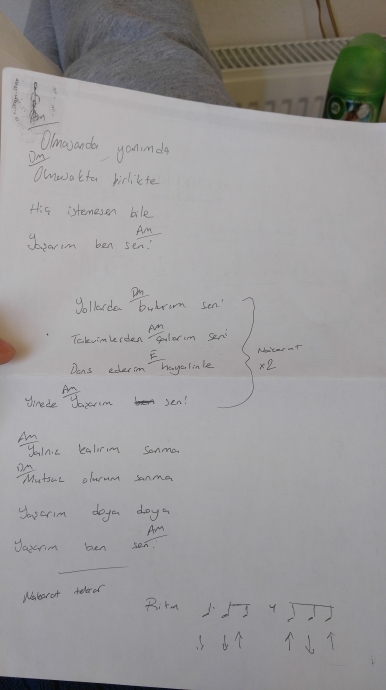 Am
Olmasanda yanımda
Dm
Olmasakta birlikte
Hiç istemesen bile
Am
Yaşarım ben seni
Dm
Yollarda bulurum seni
Am
Takvimlerden çalarım seni
E
Dans ederim hayalinle
Nakarat
x2
Am
Yinede Yaşarım ben seni
Am
Yalnız kalırım sanma
Dm
Mutsuz olurum sanma
Yaşarım doya doya
Am
Yaşarım ben seni
Nakarat tekrar
Ritm
↓ ↓ ↑ ↑ ↓ ↑